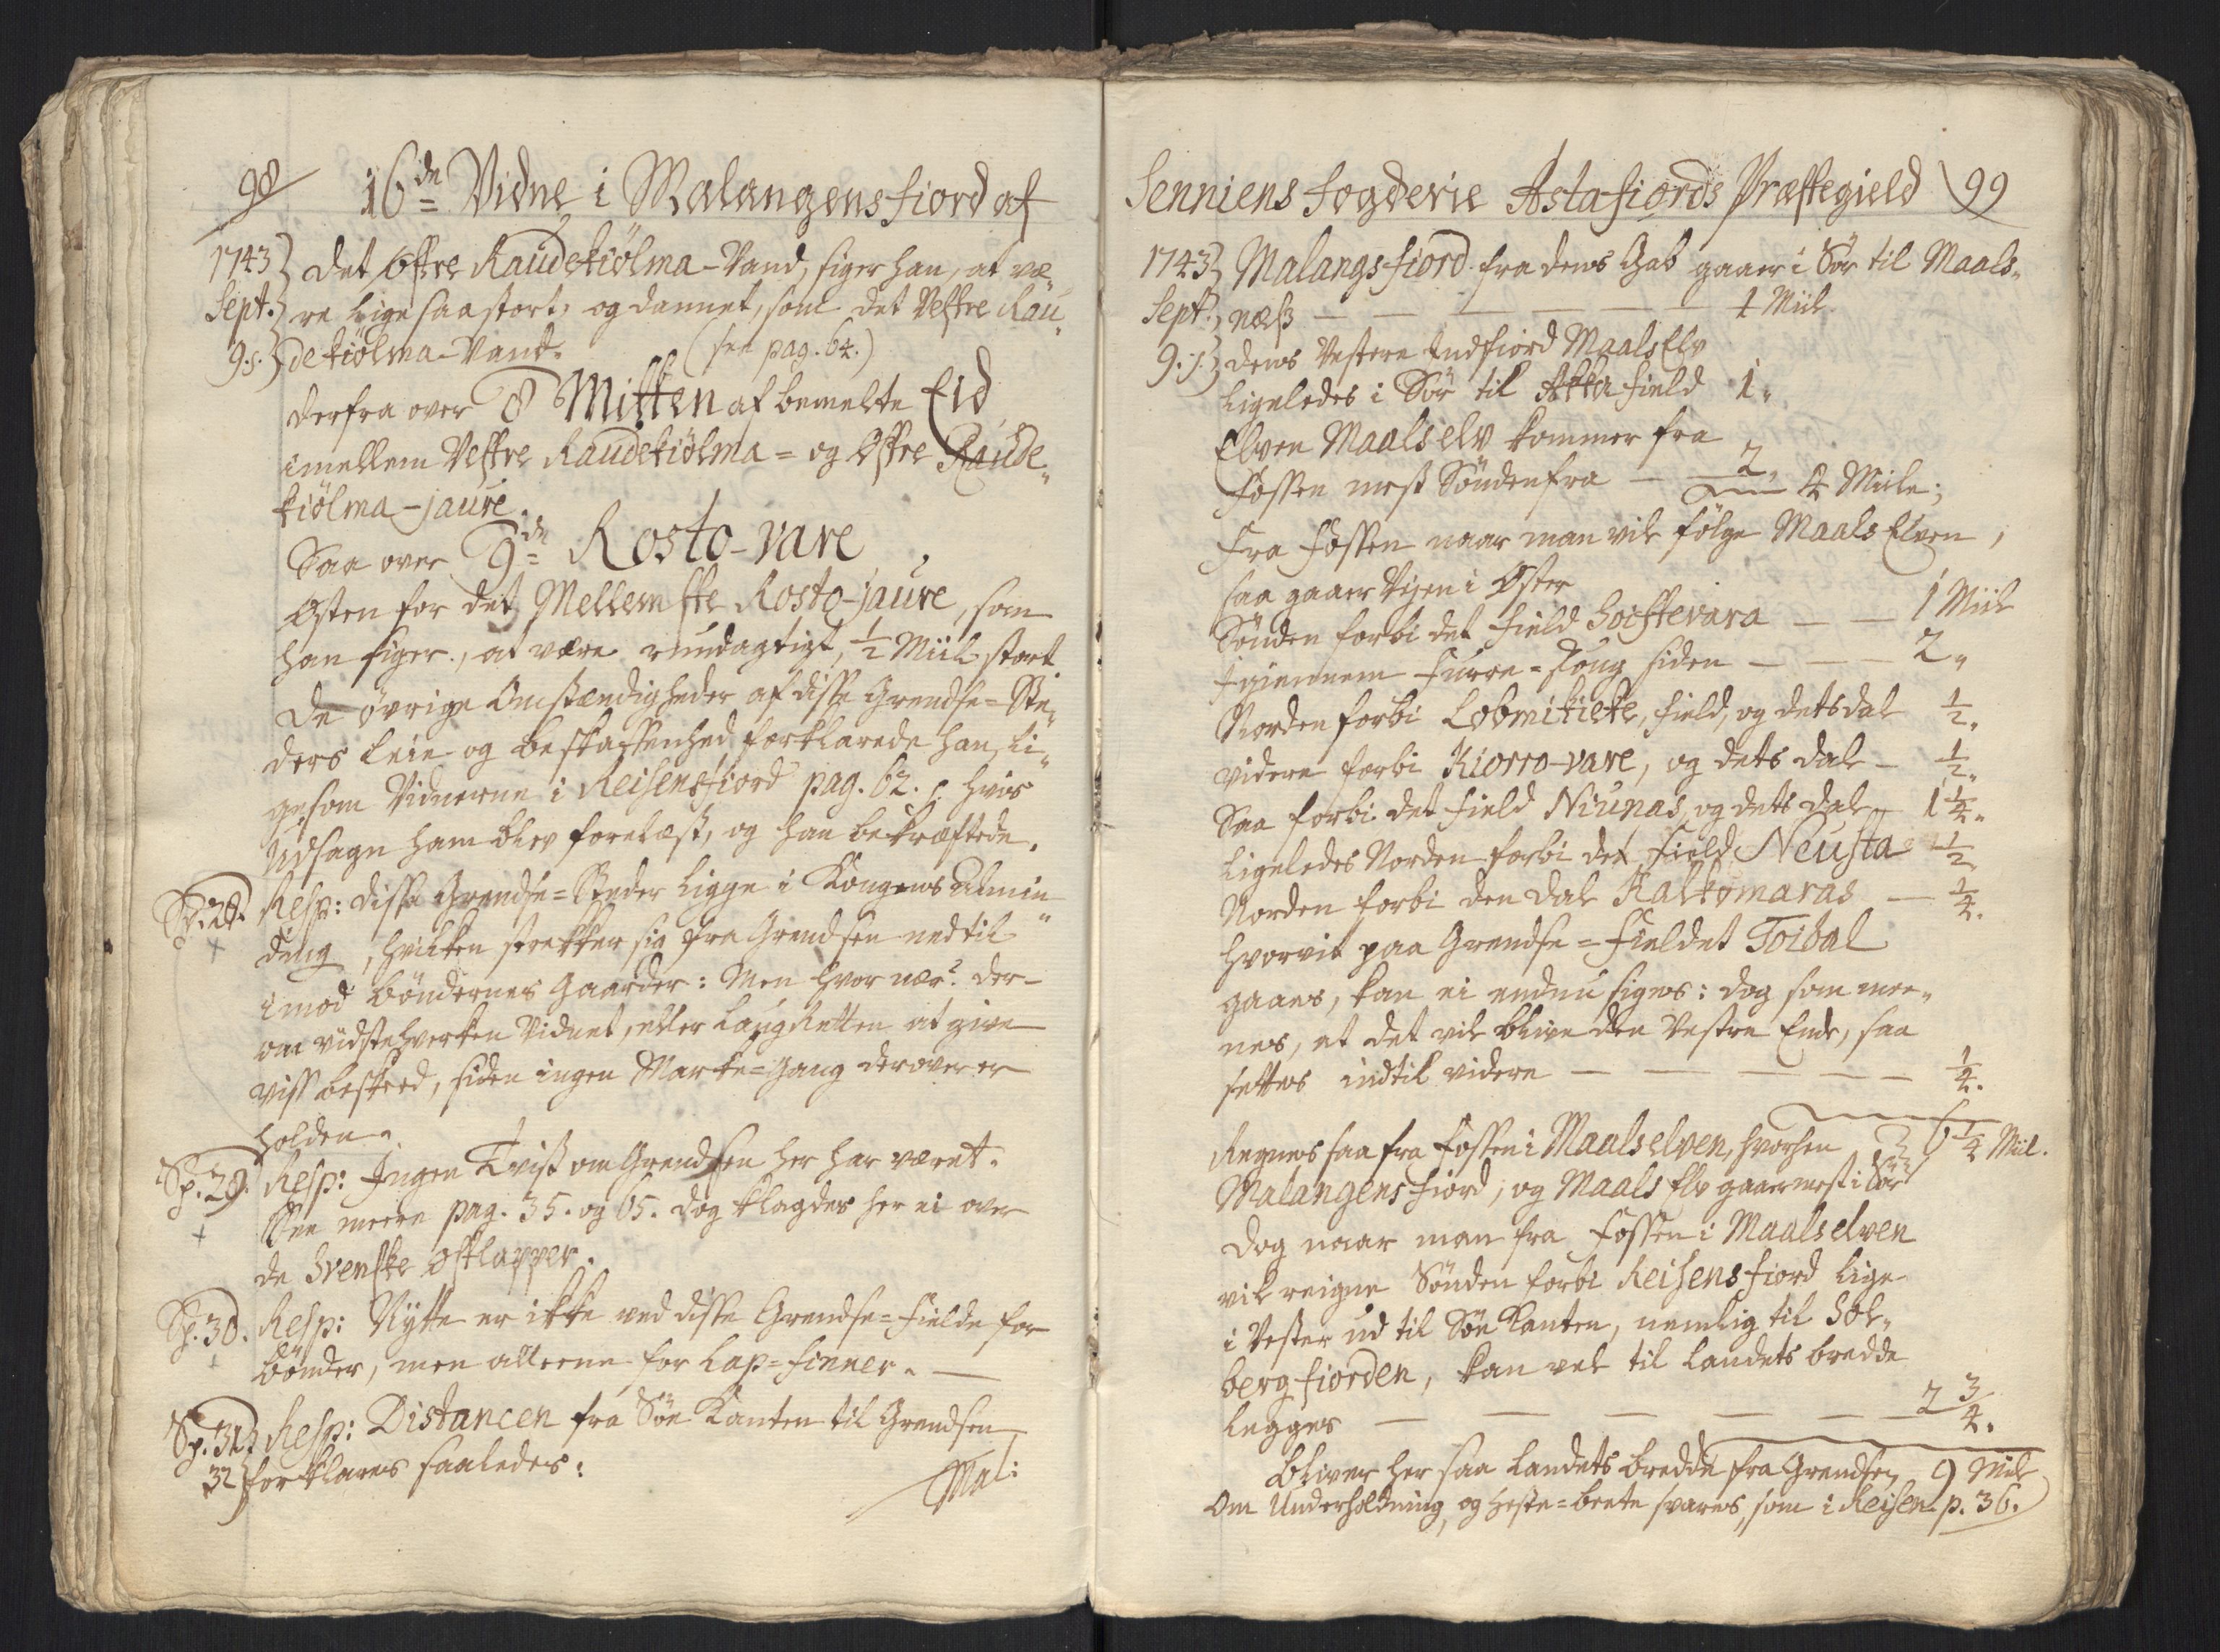 98
16de Vidne i Malangens fiord af
1743 det Østre Raudekiølma-Vand, siger han, at væ-
Sept. re lige saa stort, og dannet, som det Vestre Rau-
9. s. dekiølma-Vand. (see pag. 64.)
Derfra over 8 Mitten af bemelte Eid
imellem Vestre Raudekiølma= og Østre Raude-
kiølma-jaure.
Saa over 9de Rosto-vare
Østen for det Mellemste Rosto-jaure, som
han siger, at være rundagtigt, 1/2 Miil stort
De øvrige Omstændigheder af disse Grendse=Ste-
ders leie og beskaffenhed forklarede han li-
gesom Vidnerne i Reisensfiord pag. 62. hvis
Udsagn ham blev forelæst, og han bekræftede.
Sp. 28. Resp: disse Grendse=Steder ligge i Kongens Almin-
ding, hvilken strekker sig fra Grendsen ned til
imod Bøndernes Gaarder: Men hvor nær? der-
om vidste hverken Vidnet, eller LaugRetten at give
viss beskeed, siden ingen Marke=Gang derover er
holden.
Sp. 29. Resp: Ingen Tvist om Grendsen her har været.
See meere pag. 35. og 65. dog klagdes her ei over
de Svenske Østlapper.
Sp. 30. Resp: Nytte er ikke ved disse Grendse=Fielde for
bønder, men alleene for Lap=Finner.
Sp. 31 Resp: Distancen fra Søe Kanten til Grendsen
32 forklares saaledes:
Mal:
Senniens Fogderie Astafiords Præstegield 99
1743 Malangsfiord fra dens Gab gaaer i Sør til Maals-
Sept. næss 1 Miil
9. s. dens Vestere Indfiord MaalsElv
ligeledes i Sør til Akka field 1.
Elven Maalselv kommer fra
Fossen mest Søndenfra 2.
4 Miile;
Fra Fossen naar man vil følge MaalsElven,
saa gaaer Vejen i Øster
Sønden forbi det Field Soistevara 1 Miil
Igiennem Furre=Skoug siden 2.
Norden forbi Lobmitiete, field, og dets dal 1/2.
videre forbi Kiorro-vare, og dets dal 1/2.
Saa forbi det Field Niunas, og dets dal 1 1/4.
ligeledes Norden forbi det Field Neusta 1/2
Norden forbi den dal Kalkomaras 1/4.
hvorvit paa Grendse=Fieldet Toibal
gaaes, kan ei endnu siges: dog som mee-
nes, at det vil blive den Vestre Ende, saa
settes indtil videre 1/4.
Regnes saa fra Fossen i Maalselven, hvorhen 6 1/4 Miil.
Malangens fiord, og MaalsElv gaaer mest i Sør
Dog naar man fra Fossen i Maalselven
vil reigne Sønden forbi Reisens fiord lige
i Vester ud til Søe Kanten, nemlig til Sol-
bergfiorden, kan vel til Landets bredde
legges 2 3/4.
Bliver her saa Landets bredde fra Grendsen 9 Miil
Om Underholdning, og Heste=beete svares, som i Reisen p. 36.